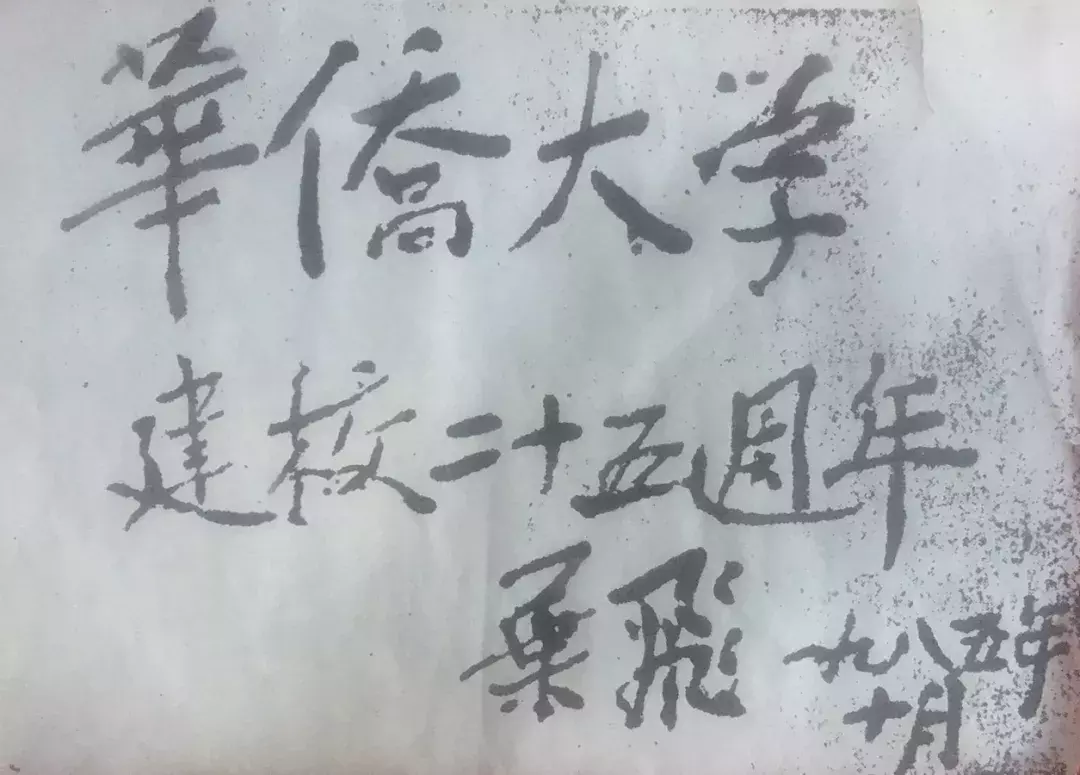 華僑大学
建校二十五週年
葉飛 一九八五年
十月